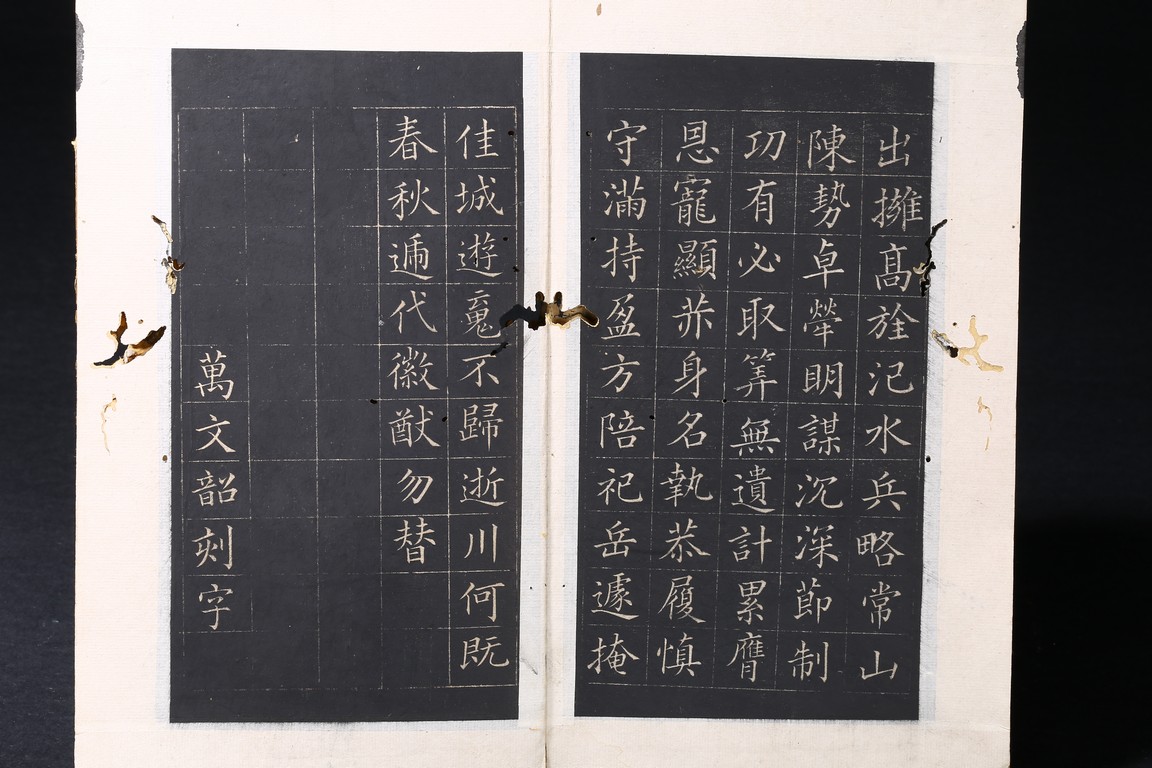 出擁髙旌汜水兵略常山
陳勢卓犖明謀沉深節制
㓛有必取筭無遺計累膺
恩寵顯茶身名執恭履慎
守滿持盈方陪祀岳遽掩
佳城遊䰟不歸逝川何既
春秋遞代徽猷勿替
萬文韶刻字